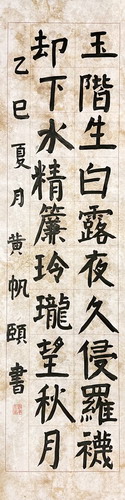 玉階生白露夜久侵羅襪
却下水精簾玲瓏望秋月
乙巳夏月黄帆頤書